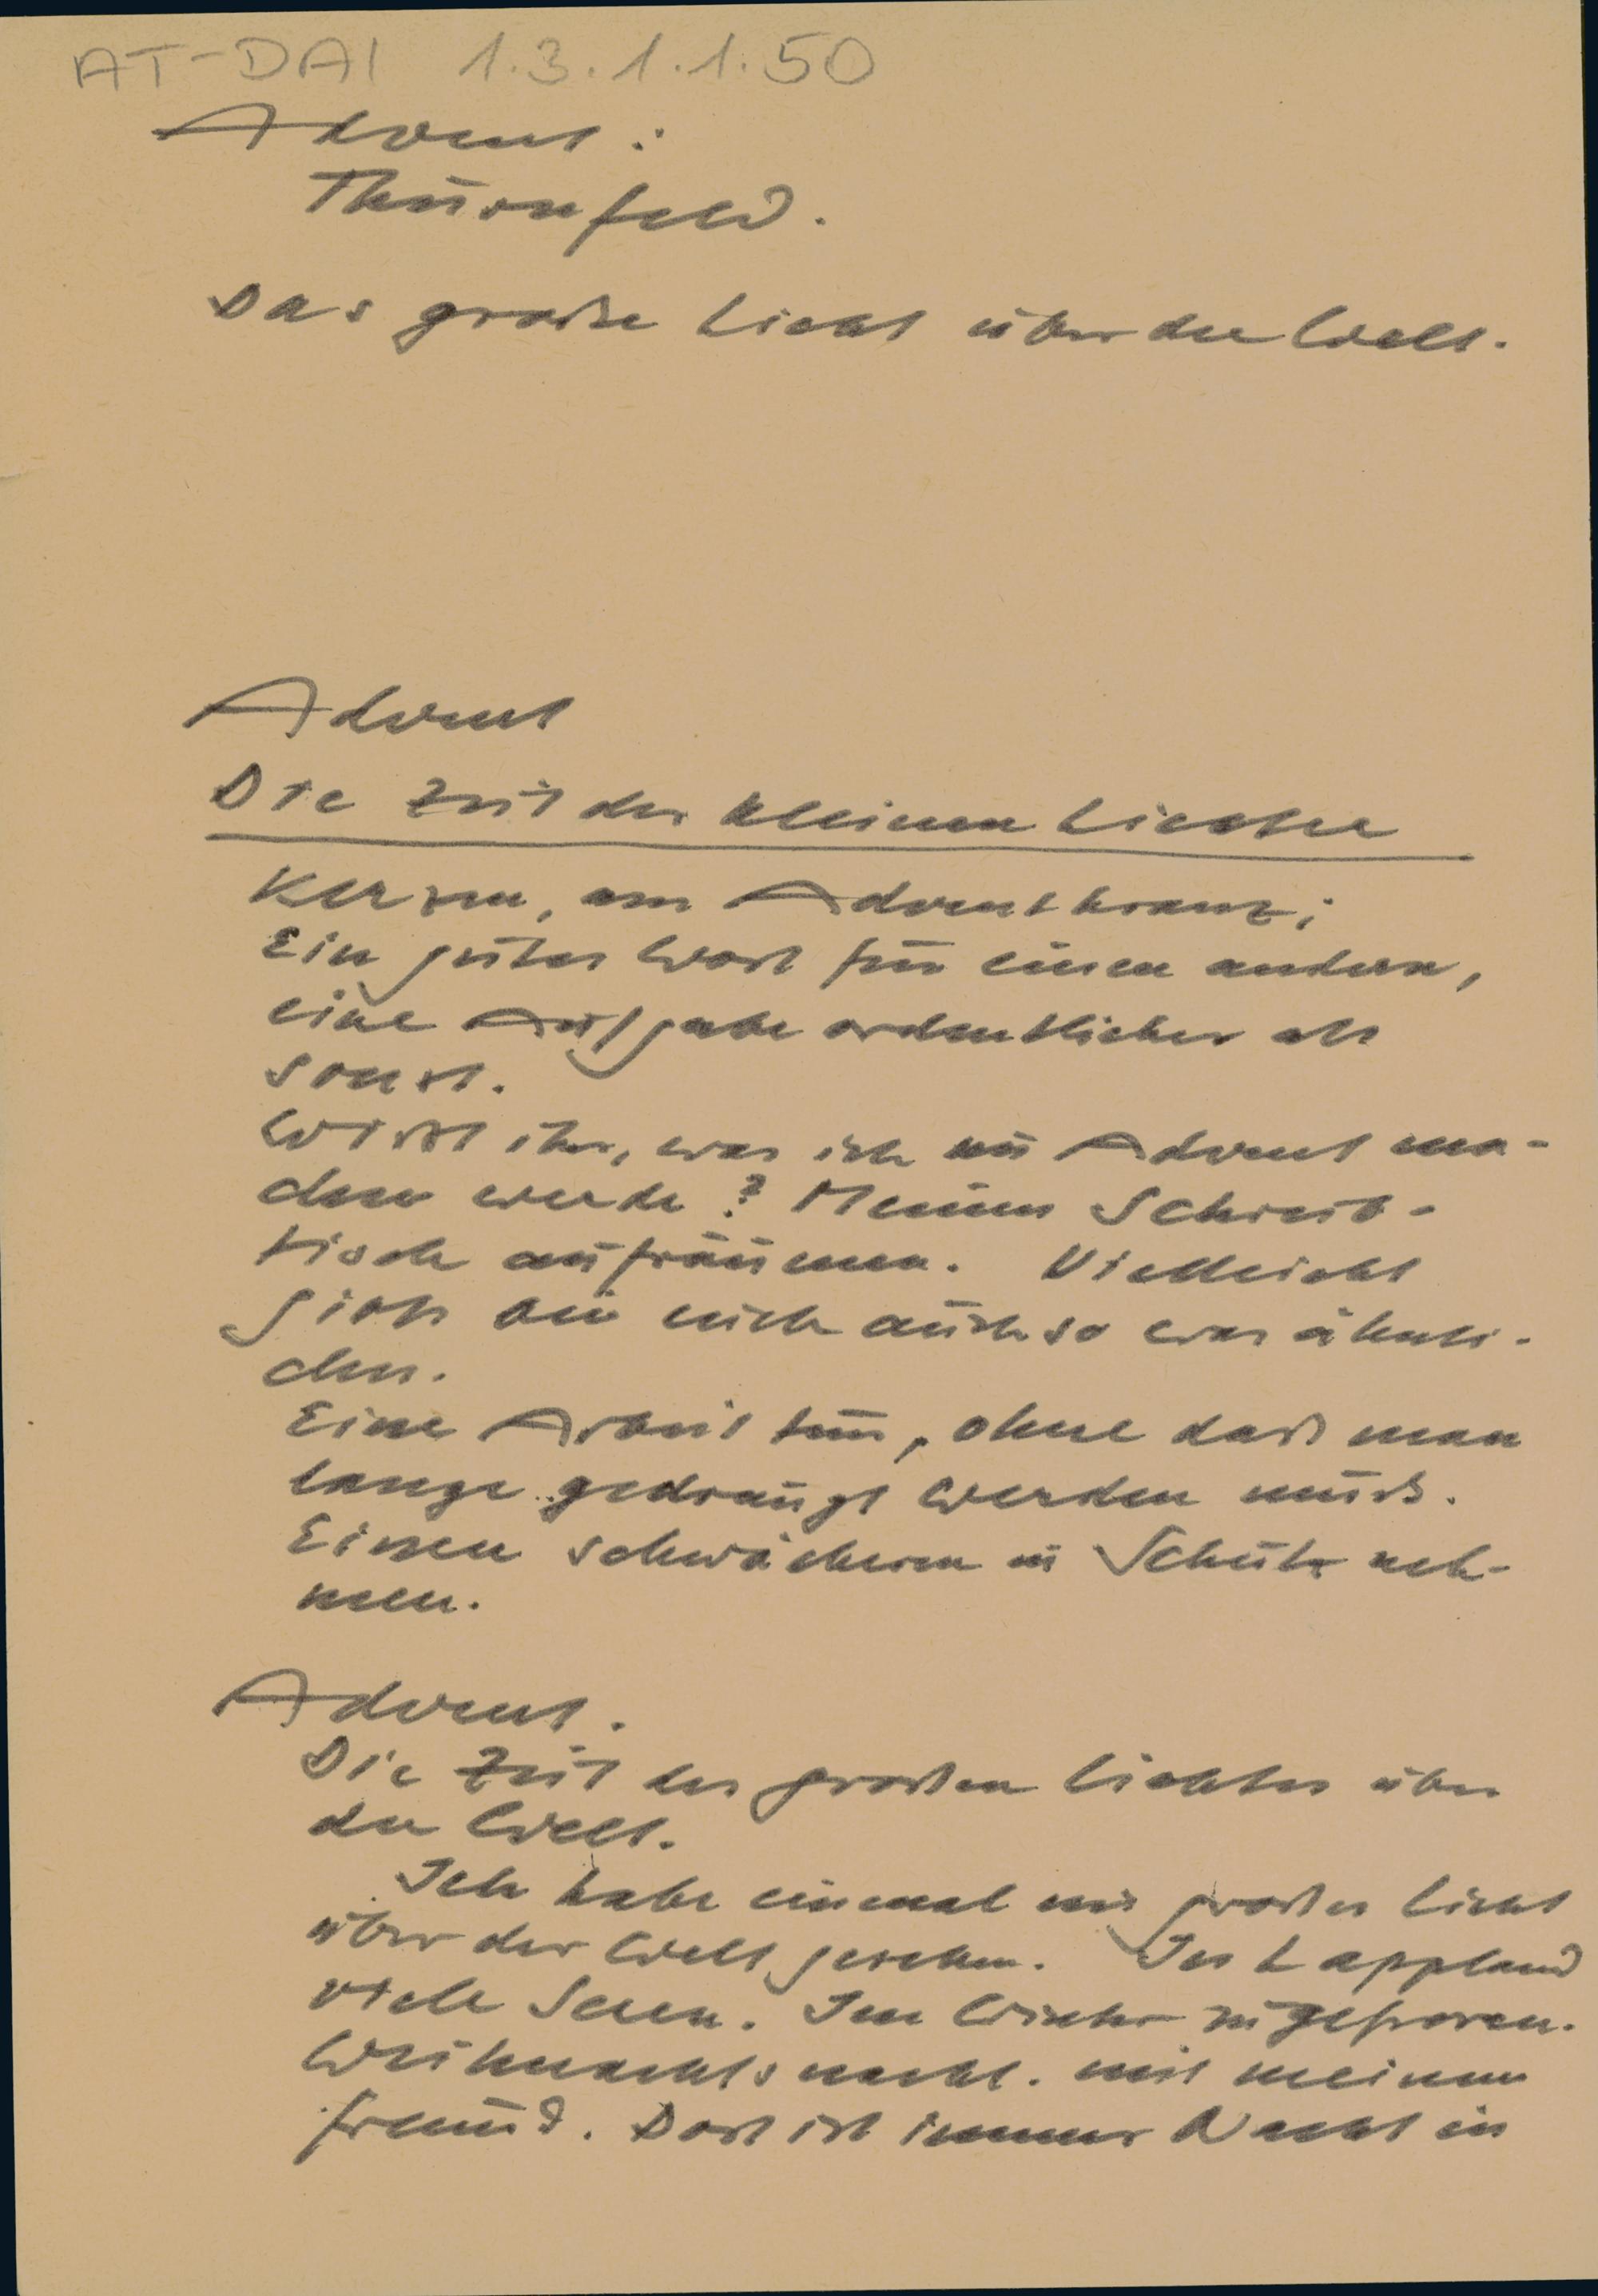 AT-DAI 1.3.1.1.50
Advent:
Thürnfeld.
Das große Licht über der Welt.
Advent
Die Zeit der kleinen Lichter
Kerzen, am Adventkranz;
Ein gutes Wort für einen andern,
eine Aufgabe ordentlicher als
sonst.
Wisst ihr, was ich im Advent ma-
chen werde? Meinen Schreib-
tisch aufräumen. Vielleicht
gibts bei euch auch so was ähnli-
ches.
Eine Arbeit tun, ohne daß man
lange gedrängt werden muß.
Einen schwächeren in Schutz neh-
men.
Advent.
Die Zeit des großen Lichtes über
der Welt.
Ich habe einmal ein großes Licht
über der Welt gesehen. In Lappland
viele Seen. Im Winter zugefroren.
Weihnachtsnacht. mit meinem
Freund. Dort ist immer Nacht in